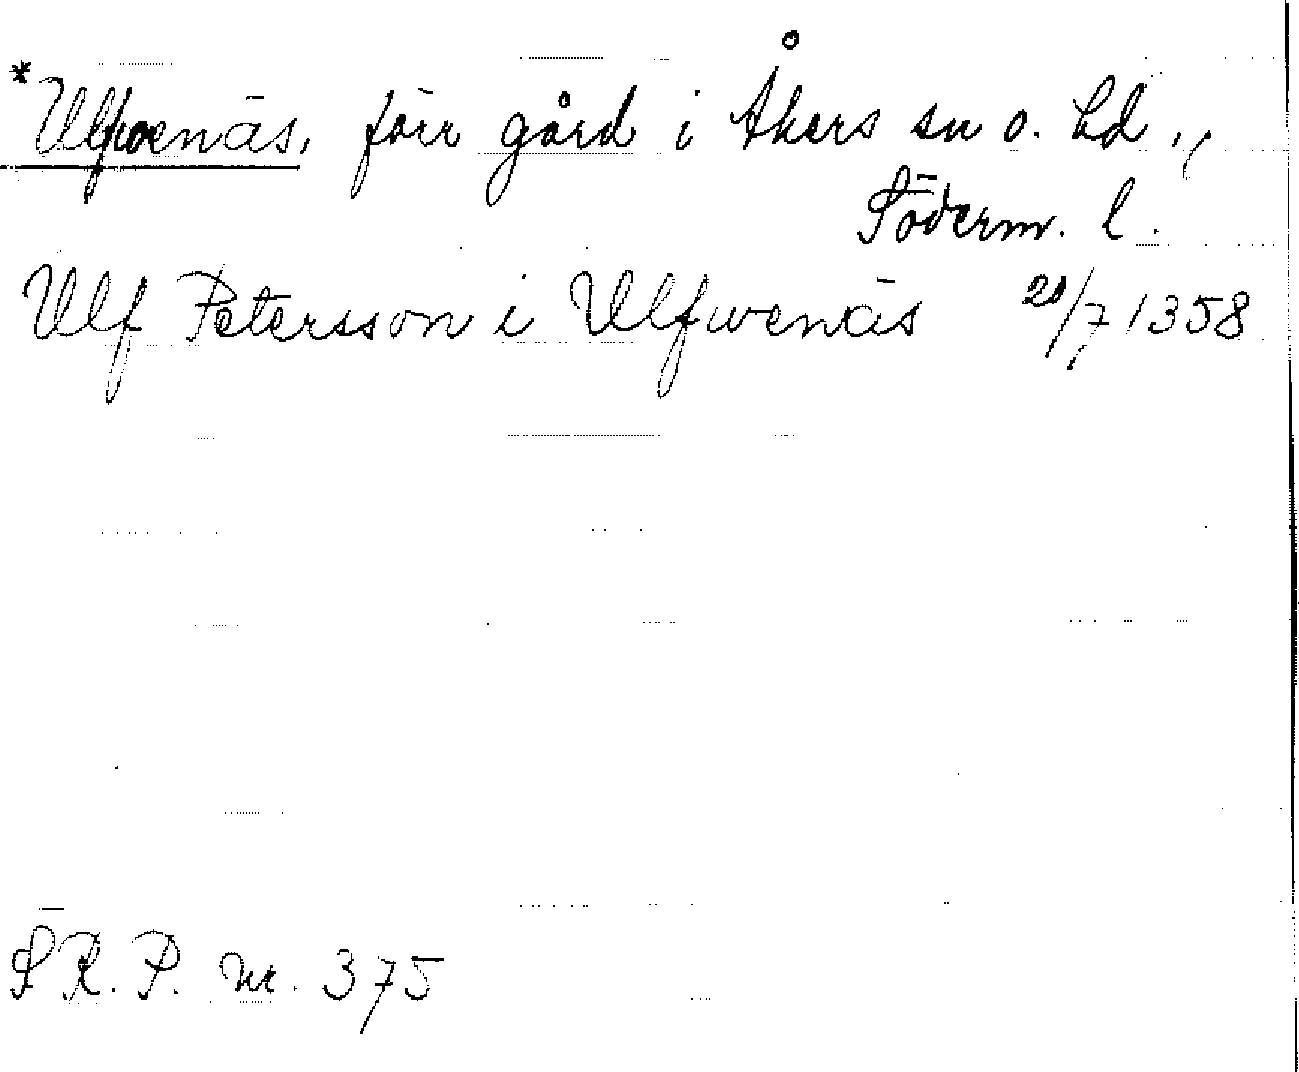 *Ulfwenäs, förr gård i Åkers sn o. hd.,
Söderm. l.
Ulf Petersson i Ulfwenäs 20/7 1358
S R. P. nr. 375